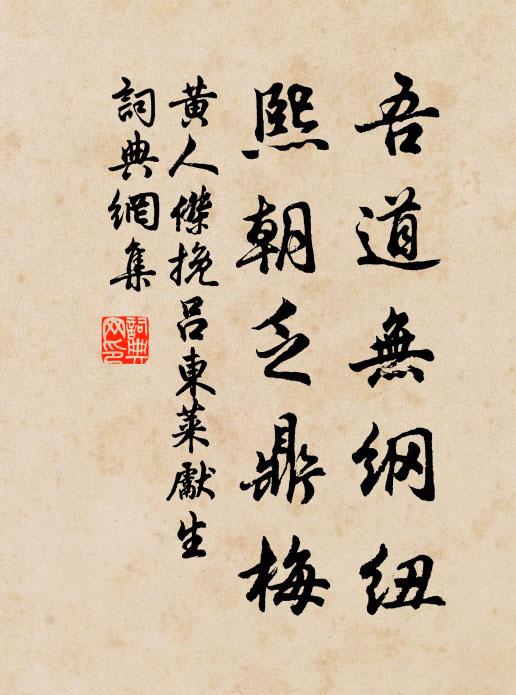 吾道無綱紐
熙朝乏鼎梅
黃人傑挽呂東萊獻生
詞典網集
詞典網印